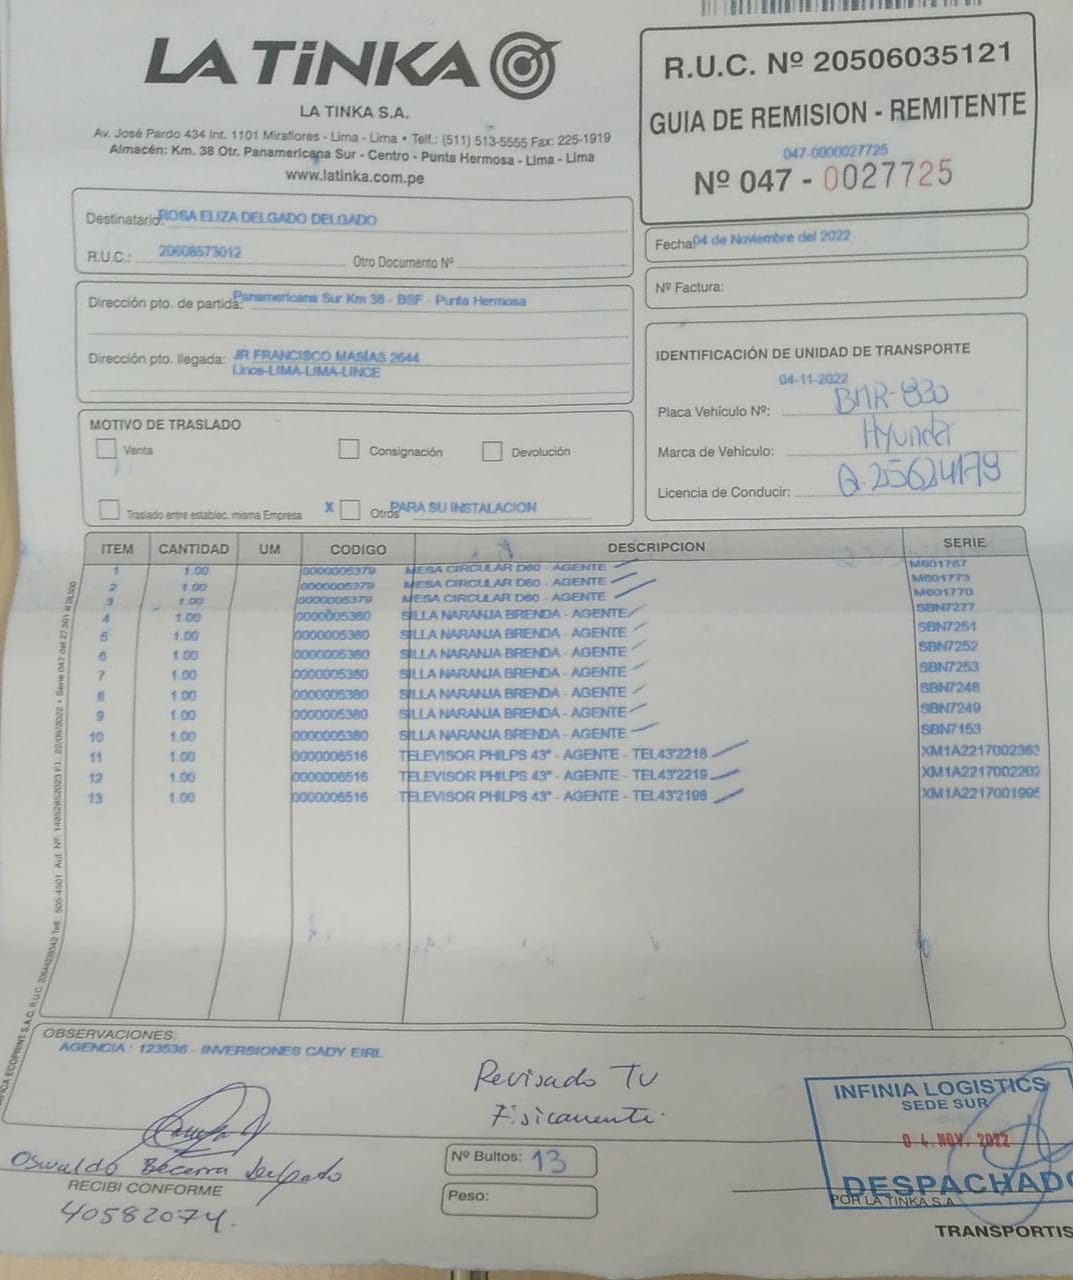 LA TiNKA
LA TINKA S.A.
Av. José Pardo 434 Int. 1101 Miraflores - Lima - Lima • Telf.: (511) 513-5555 Fax: 225-1919
Almacén: Km. 38 Otr. Panamericana Sur - Centro - Punta Hermosa - Lima - Lima
www.latinka.com.pe
R.U.C. Nº 20506035121
GUIA DE REMISION - REMITENTE
047-0000027725
Nº 047 - 0027725
Destinatario: ROSA ELIZA DELGADO DELGADO
R.U.C.: 20608573012 Otro Documento Nº
Fecha: 04 de Noviembre del 2022
Nº Factura:
Dirección pto. de partida: Panamericana Sur Km 38 - BSF - Punta Hermosa
Dirección pto. llegada: JR FRANCISCO MASÍAS 2644
Lince-LIMA-LIMA-LINCE
IDENTIFICACIÓN DE UNIDAD DE TRANSPORTE
04-11-2022
Placa Vehículo Nº: BMR-830
Marca de Vehículo: Hyundai
Licencia de Conducir: Q.25624179
MOTIVO DE TRASLADO
Venta Consignación Devolución
Traslado entre establec. misma Empresa X Otros PARA SU INSTALACION
ITEM CANTIDAD UM CODIGO DESCRIPCION SERIE
1 1.00 0000005379 MESA CIRCULAR D60 - AGENTE M601767
2 1.00 0000005379 MESA CIRCULAR D60 - AGENTE M601773
3 1.00 0000005379 MESA CIRCULAR D60 - AGENTE M601770
4 1.00 0000005380 SILLA NARANJA BRENDA - AGENTE SBN7277
5 1.00 0000005380 SILLA NARANJA BRENDA - AGENTE SBN7251
6 1.00 0000005380 SILLA NARANJA BRENDA - AGENTE SBN7252
7 1.00 0000005380 SILLA NARANJA BRENDA - AGENTE SBN7253
8 1.00 0000005380 SILLA NARANJA BRENDA - AGENTE SBN7248
9 1.00 0000005380 SILLA NARANJA BRENDA - AGENTE SBN7249
10 1.00 0000005380 SILLA NARANJA BRENDA - AGENTE SBN7153
11 1.00 0000006516 TELEVISOR PHILPS 43" - AGENTE - TEL43'2218 XM1A2217002363
12 1.00 0000006516 TELEVISOR PHILPS 43" - AGENTE - TEL43'2219 XM1A2217002202
13 1.00 0000006516 TELEVISOR PHILPS 43" - AGENTE - TEL43'2198 XM1A2217001995
OBSERVACIONES:
AGENCIA : 123536 - INVERSIONES CADY EIRL
Revisado TV
Fisicamente.
INFINIA LOGISTICS
SEDE SUR
04 NOV. 2022
DESPACHADO
POR LA TINKA S.A.
Oswaldo Becerra Delgado
RECIBI CONFORME
40582074.
Nº Bultos: 13
Peso:
TRANSPORTIS